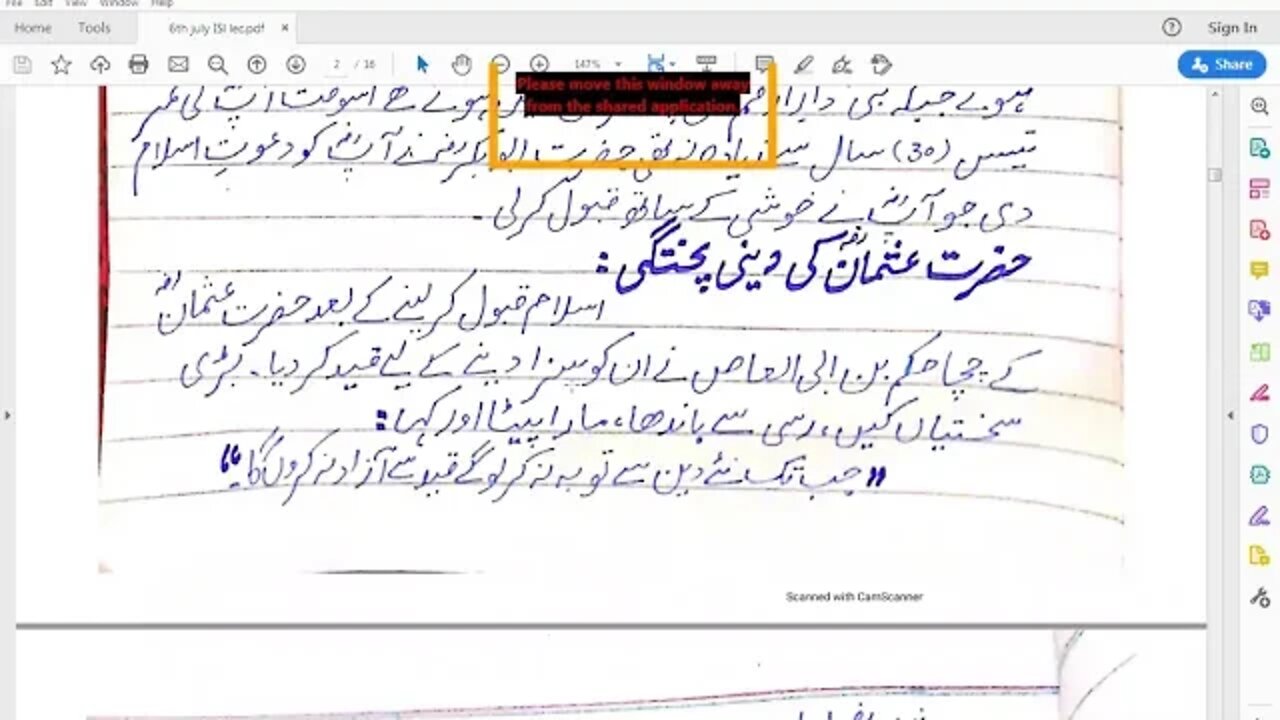 File Edit View Window Help
Home Tools 6th july ISI lec.pdf × Sign In
2 / 16 147% Share
Please move this window away
from the shared application.
ہوئے جبکہ نبی دارارقم ہوئے تھے اسوقت آپ کی عمر
تیس (30) سال سے زیادہ نہ تھی حضرت ابوبکرؓ نے آپؓ کو دعوتِ اسلام
دی جو آپؓ نے خوشی کے ساتھ قبول کرلی۔
حضرت عثمانؓ کی دینی پختگی:
اسلام قبول کر لینے کے بعد حضرت عثمانؓ
کے چچا حکم بن ابی العاص نے ان کو سزا دینے کے لیے قید کر دیا۔ بڑی
سختیاں کیں، رسی سے باندھا، مارا پیٹا اور کہا:
"جب تک نئے دین سے توبہ نہ کرلو گے قید سے آزاد نہ کروں گا۔"
Scanned with CamScanner